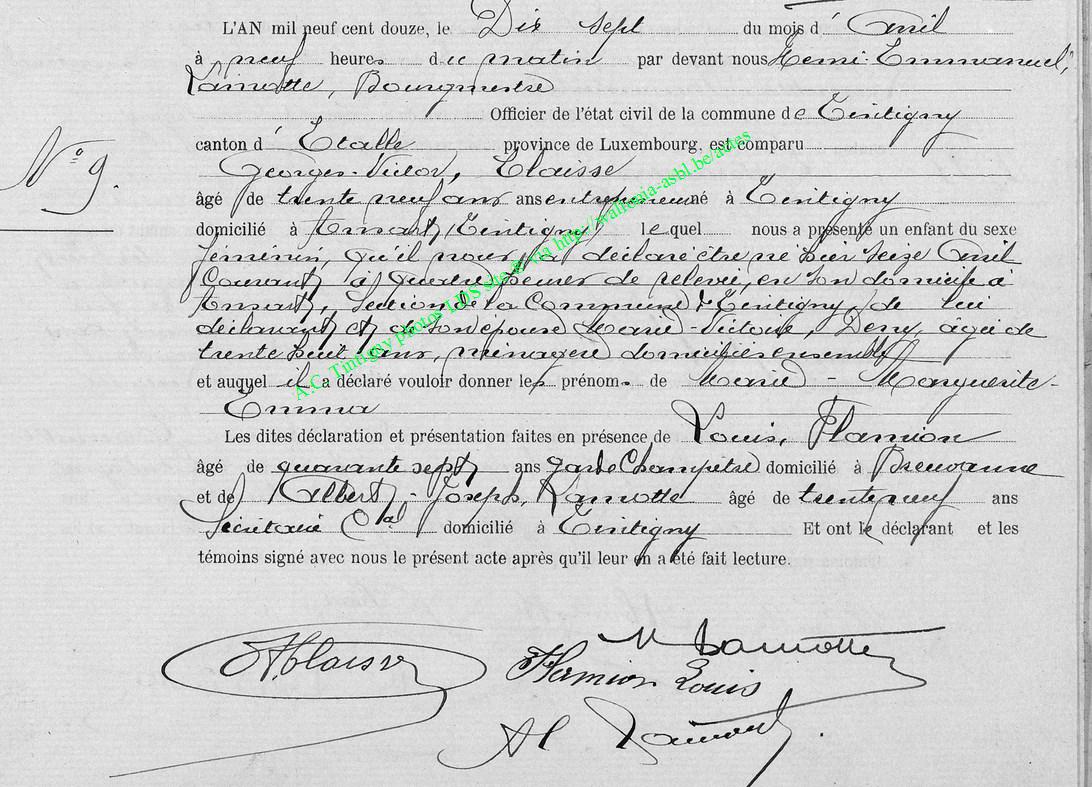 L'AN mil neuf cent douze, le Dix sept du mois d' Avril
à neuf heures du matin par devant nous Henri-Emmanuel,
Lamotte, Bourgmestre
Officier de l'état civil de la commune de Tintigny
canton d' Etalle province de Luxembourg, est comparu
N° 9.
Georges-Victor, Claisse
âgé de trente neuf ans ans entrepreneur né à Tintigny
domicilié à Ansart, Tintigny lequel nous a présenté un enfant du sexe
féminin, qu'il nous a déclaré être né hier seize Avril
Courant, à quatre heures de relevée, en son domicile à
Ansart, Section de la Commune de Tintigny, de lui
déclarant et de son épouse Marie-Victoire, Deny, âgée de
trente huit ans, ménagère domiciliés ensemble
et auquel il a déclaré vouloir donner les prénoms de Marie - Marguerite-
Emma
Les dites déclaration et présentation faites en présence de Louis, Flamion
âgé de quarante sept ans garde Champêtre domicilié à Breuvanne
et de Albert-Joseph, Lamotte âgé de trente neuf ans
Secrétaire Cal domicilié à Tintigny Et ont le déclarant et les
témoins signé avec nous le présent acte après qu'il leur en a été fait lecture.
Claisse
Lamotte
Flamion Louis
Al Lamotte
A.C. Tintigny photos LDS site © via http://wallonia-asbl.be/actas